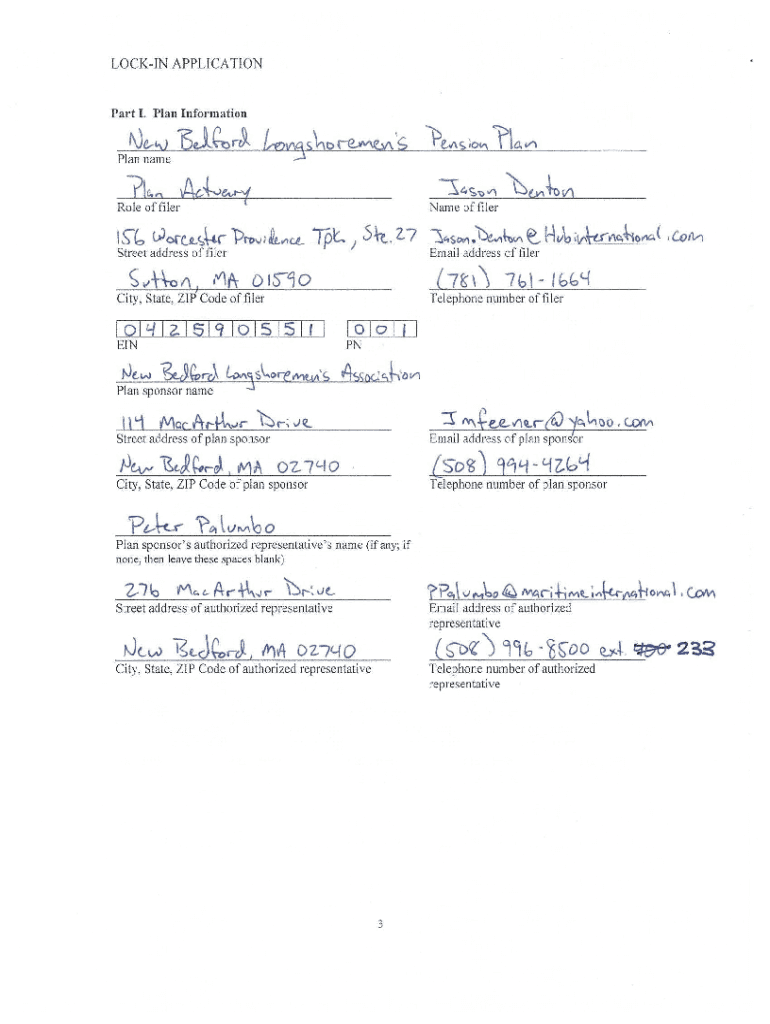 LOCK-IN APPLICATION
Part I. Plan Information
New Bedford Longshoremen's Pension Plan
Plan name
Plan Actuary Jason Denton
Role of filer Name of filer
156 Worcester Providence Tpk., Ste. 27 Jason.Denton@Hubinternational.com
Street address of filer Email address of filer
Sutton, MA 01590 (781) 761-1664
City, State, ZIP Code of filer Telephone number of filer
042590551 001
EIN PN
New Bedford Longshoremen's Association
Plan sponsor name
114 MacArthur Drive Jmfeener@yahoo.com
Street address of plan sponsor Email address of plan sponsor
New Bedford, MA 02740 (508) 994-4264
City, State, ZIP Code of plan sponsor Telephone number of plan sponsor
Peter Palumbo
Plan sponsor's authorized representative's name (if any; if
none, then leave these spaces blank)
276 MacArthur Drive PPalumbo@maritimeinternational.com
Street address of authorized representative Email address of authorized
representative
New Bedford, MA 02740 (508) 996-8500 ext. 233
City, State, ZIP Code of authorized representative Telephone number of authorized
representative
3